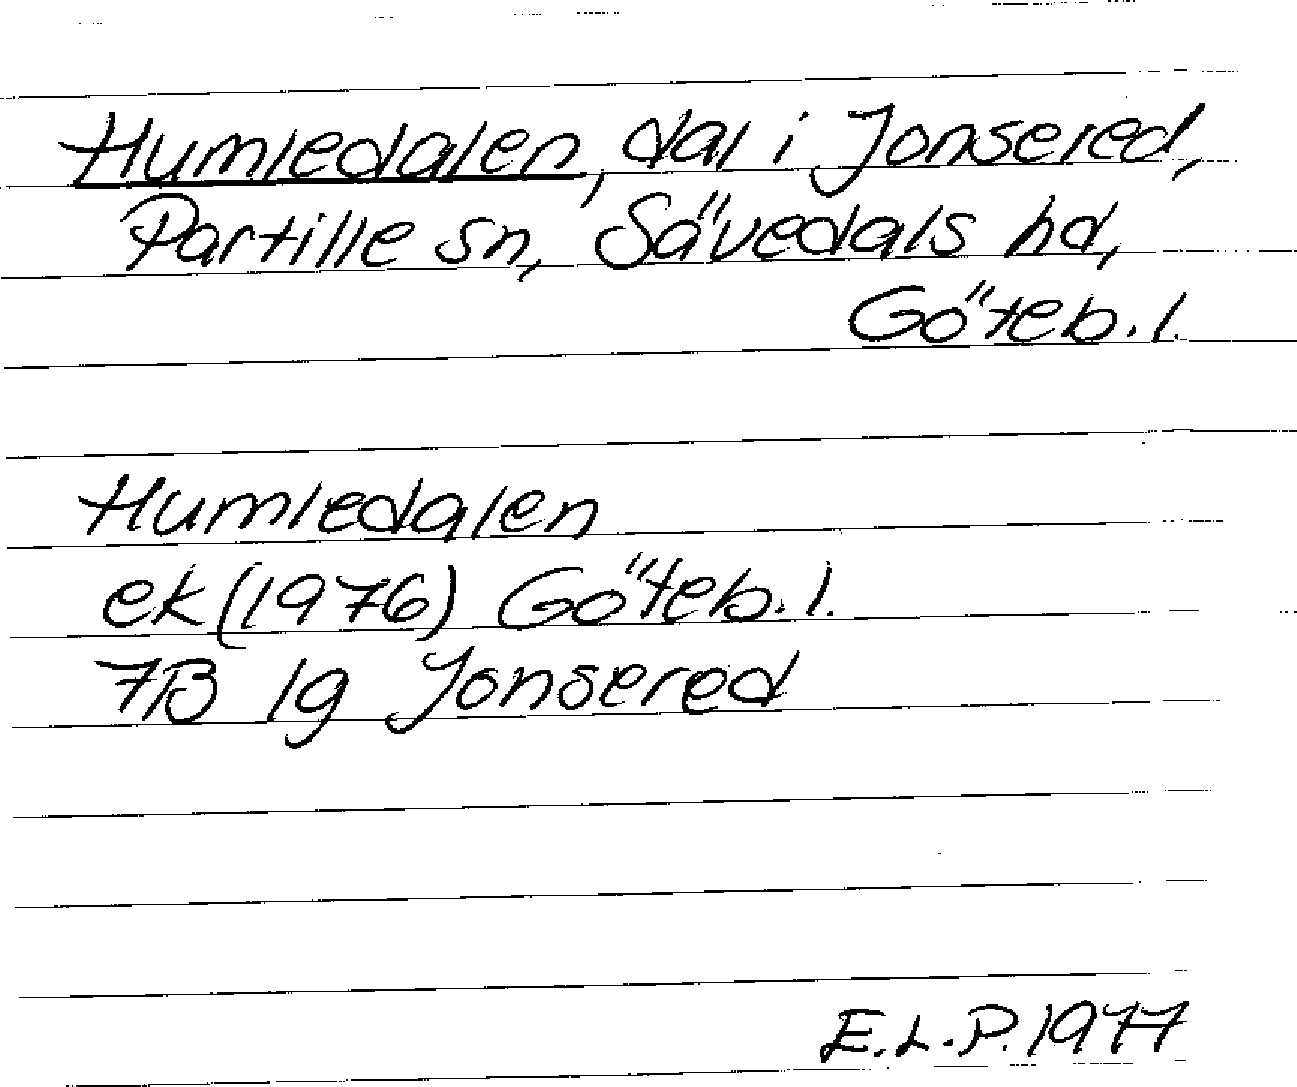 Humledalen, dal i Jonsered,
Partille sn, Sävedals hd,
Göteb. l.
Humledalen
ek (1976) Göteb. l.
7B 1g Jonsered
E.L.P. 1977